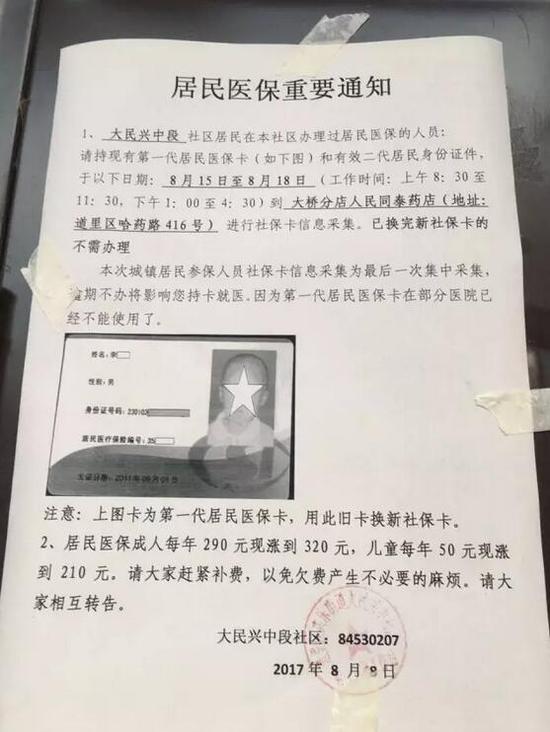 居民医保重要通知
1、 大民兴中段 社区居民在本社区办理过居民医保的人员：
请持现有第一代居民医保卡（如下图）和有效二代居民身份证件，
于以下日期： 8月15日至8月18日 （工作时间：上午8：30至
11：30，下午1：00至4：30）到 大桥分店人民同泰药店（地址：
道里区哈药路416号） 进行社保卡信息采集。已换完新社保卡的
不需办理
本次城镇居民参保人员社保卡信息采集为最后一次集中采集，
逾期不办将影响您持卡就医。因为第一代居民医保卡在部分医院已
经不能使用了。
姓名：李
性别：男
身份证号码：230102
居民医疗保险编号：35
发证日期：2011年09月01日
注意：上图卡为第一代居民医保卡，用此旧卡换新社保卡。
2、居民医保成人每年290元现涨到320元，儿童每年50元现涨
到210元。请大家赶紧补费，以免欠费产生不必要的麻烦。请大
家相互转告。
大民兴中段社区：84530207
2017年8月8日